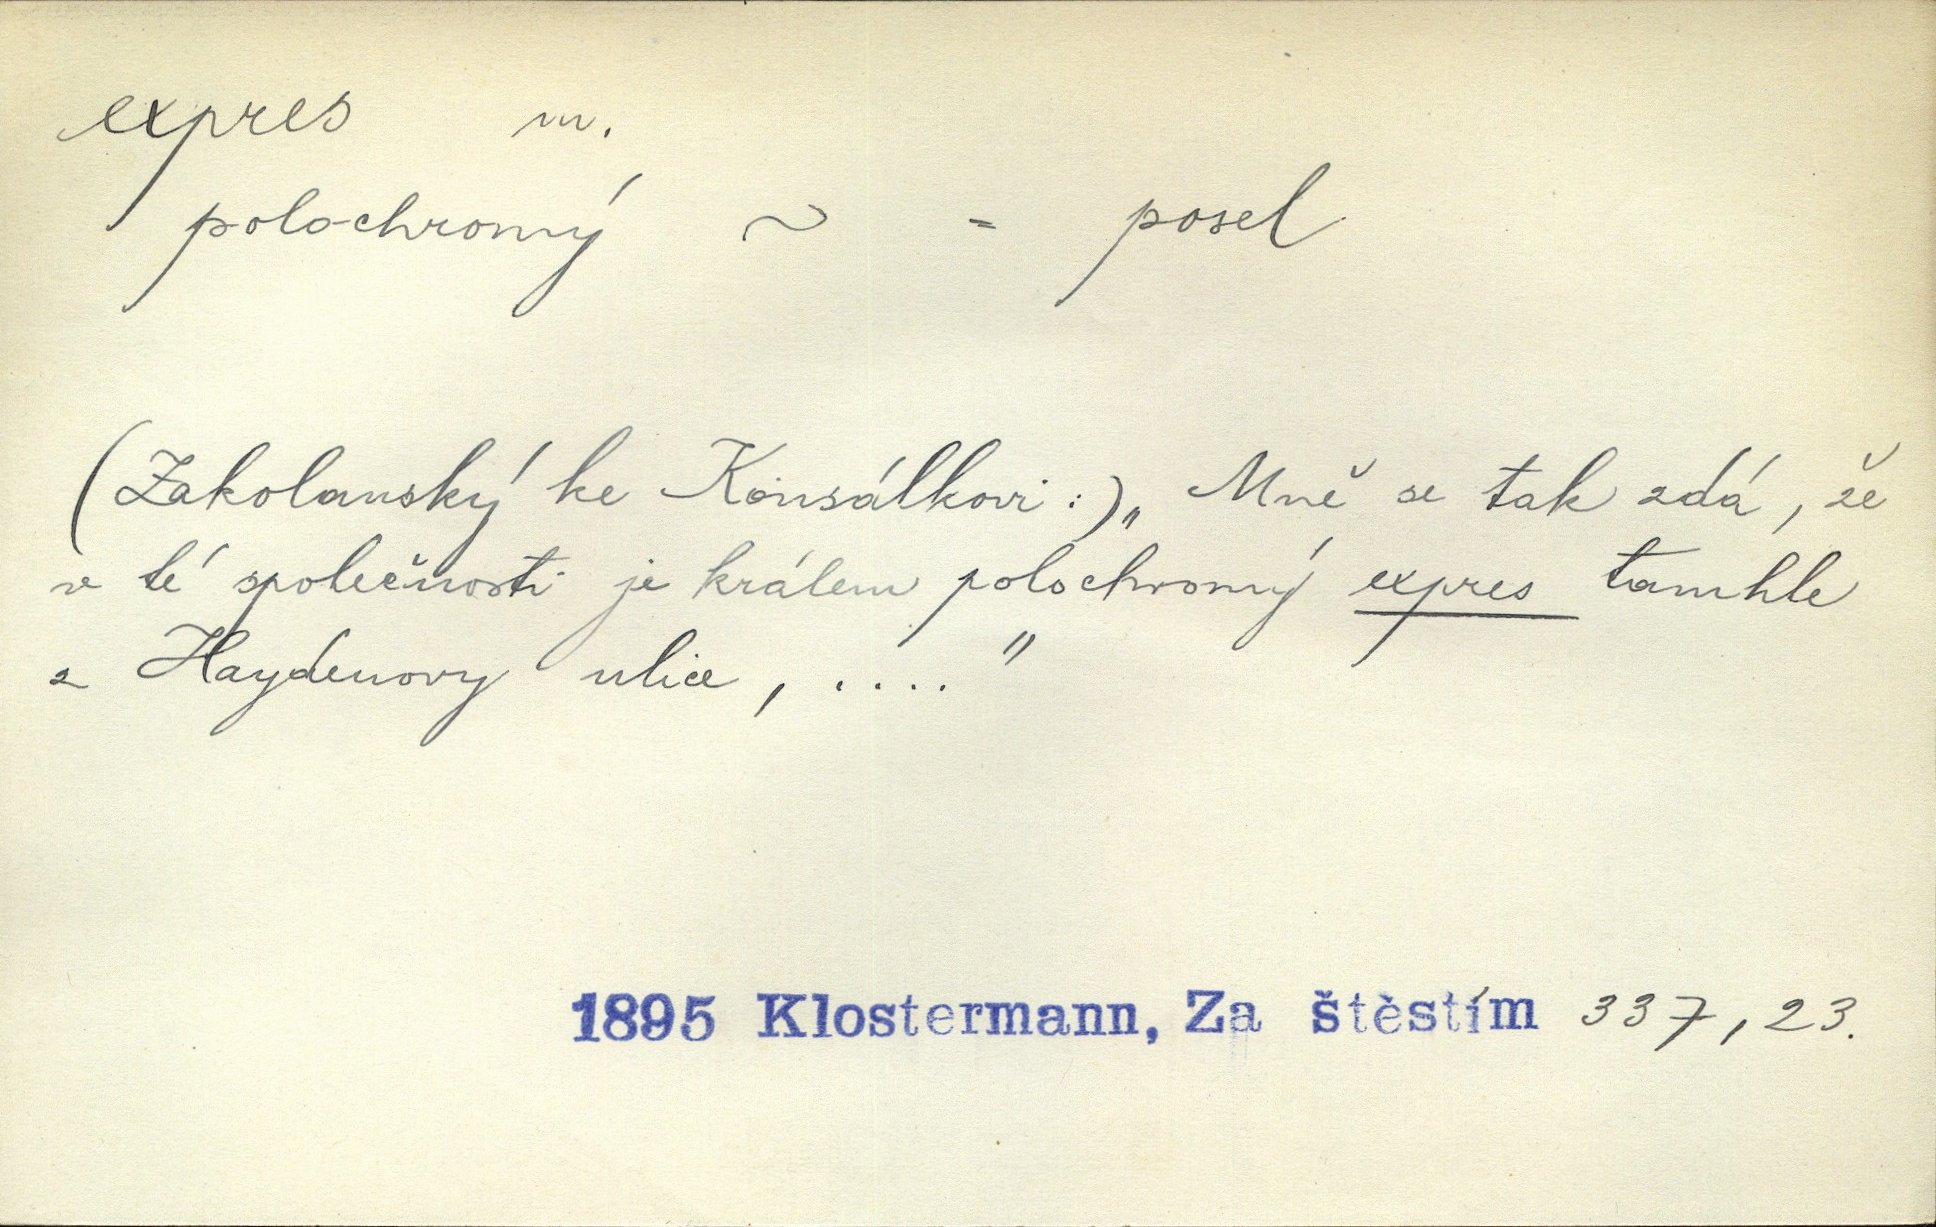 expres m.
polochromý ~ = posel
(Zakolanský ke Konsálkovi:) „Mně se tak zdá, že
v té společnosti je králem polochromý expres tamhle
z Haydenovy ulice, ...."
1895 Klostermann, Za štěstím 337, 23.